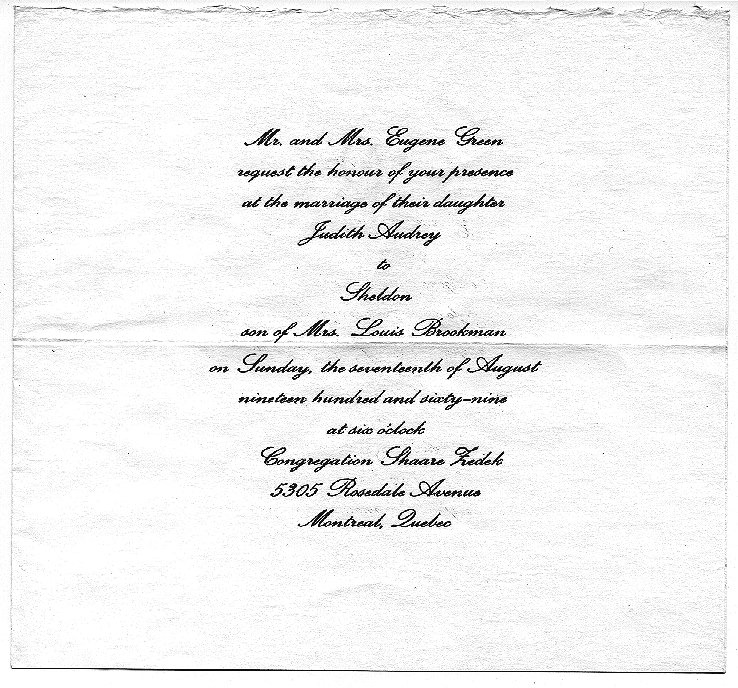 Mr. and Mrs. Eugene Green
request the honour of your presence
at the marriage of their daughter
Judith Audrey
to
Sheldon
son of Mrs. Louis Brookman
on Sunday, the seventeenth of August
nineteen hundred and sixty-nine
at six o'clock
Congregation Shaare Zedek
5305 Rosedale Avenue
Montreal, Quebec